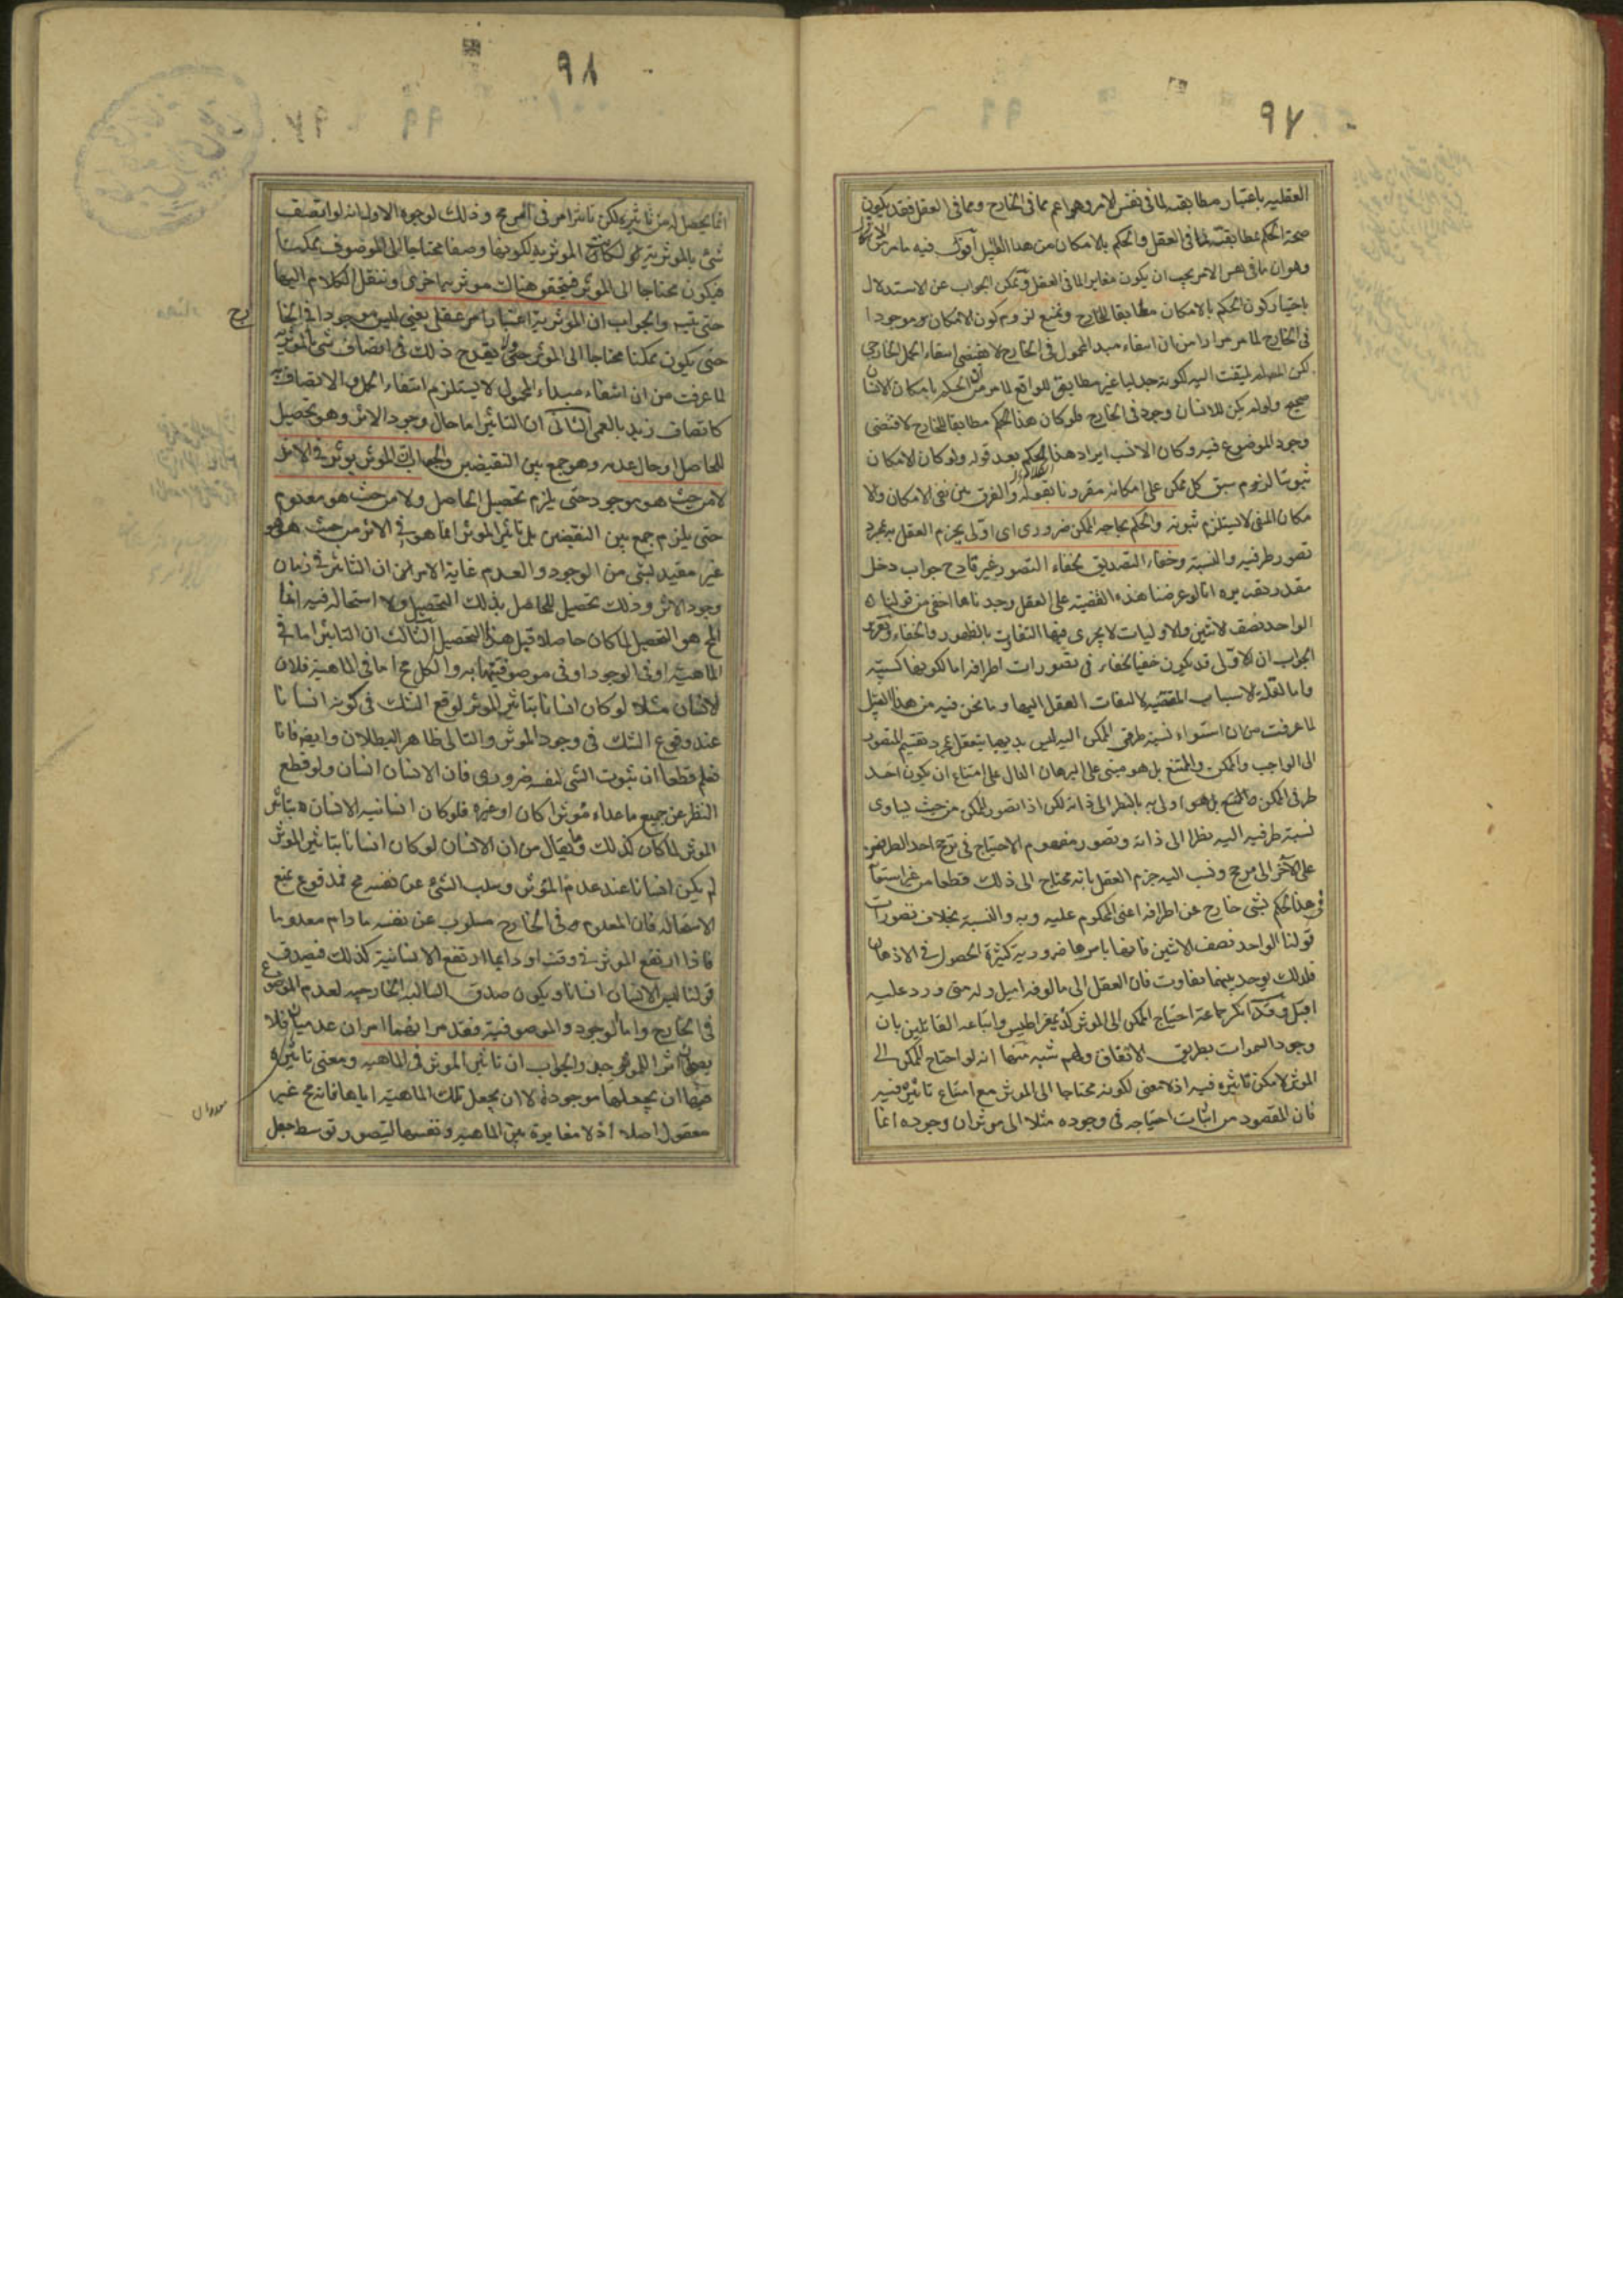 ٩٧
العقلية باعتبار مطابقته لما فى نفس الامر وهو اعم مما فى الخارج ومما فى العقل فقد يكون
صحة الحكم بمطابقته لما فى العقل والحكم بالامكان من هذا القبيل اقول فيه ما مر
وهو ان ما فى نفس الامر يجب ان يكون مغايرا لما فى العقل ويمكن الجواب عن الاستدلال
باختيار كون الحكم بالامكان مطابقا للخارج ونمنع لزوم كون الامكان موجودا
فى الخارج لما مر مرارا من ان انتفاء مبدا المحمول فى الخارج لا يقتضى انتفاء الحمل الخارجى
لكن المصنف لم يلتفت اليه لكونه جدليا غير مطابق للواقع لما مر من ان الحكم بامكان الانسان
صحيح ولو لم يكن للانسان وجود فى الخارج فلو كان هذا الحكم مطابقا للخارج لاقتضى
وجود الموضوع فيه وكان الانسب ايراد هذا الحكم بعد قوله ولو كان الامكان
ثبوتيا لزم سبق كل ممكن على امكانه مقرونا بقوله والفرق بين نفى الامكان ولا
مكان المنفى لا يستلزم ثبوته والحكم بحاجة الممكن ضرورى اى اولى يجزم العقل به بمجرد
تصور طرفيه والنسبة وخفاء التصديق لخفاء التصور غير قادح جواب دخل
مقدر تقريره انا لو عرضنا هذه القضية على العقل وجدناها اخفى من قولنا
الواحد نصف الاثنين والاوليات لا يجرى فيها التفاوت بالظهور والخفاء وتقرير
الجواب ان الاولى قد يكون خفيا لخفاء فى تصورات اطرافه اما لكونها كسبية
واما لقلة الاسباب المقتضية لالتفات العقل اليها وما نحن فيه من هذا القبيل
لما عرفت من ان استواء نسبة طرفى الممكن اليه ليس بديهيا يتعقل بمجرد تقسيم المتصور
الى الواجب والممكن والممتنع بل هو مبنى على البرهان الدال على امتناع ان يكون احد
طرفى الممكن اولى به بالنظر الى ذاته لكن اذا تصور الممكن من حيث يساوى
نسبة طرفيه اليه نظرا الى ذاته وتصور مفهوم الاحتياج فى ترجح احد الطرفين
على الآخر الى مرجح ونسب اليه جزم العقل بانه محتاج الى ذلك قطعا من غير استعانة
فى هذا الحكم بشئ خارج عن اطرافه اعنى المحكوم عليه وبه والنسبة بخلاف تصورات
قولنا الواحد نصف الاثنين فانها باسرها ضرورية كثيرة الحصول فى الاذهان
فلذلك يوجد بينهما تفاوت فان العقل الى مالوفه اميل وله متى ورد عليه
اقبل وقد انكر جماعة احتياج الممكن الى الموثر كذيمقراطيس واتباعه القائلين بان
وجود السموات بطريق الاتفاق ولهم شبه منها انه لو احتاج الممكن الى
الموثر لامكن تاثيره فيه اذ لا معنى لكونه محتاجا الى الموثر مع امتناع تاثيره فيه
فان المقصود من اثبات احتياجه فى وجوده مثلا الى موثر ان وجوده انما
٩٨
انما يحصل له من تاثيره لكن تاثير امر فى امر مح وذلك لوجوه الاول انه لو اتصف
شئ بالموثرية لكانت الموثرية لكونها وصفا محتاجا الى الموصوف ممكنا
فيكون محتاجا الى الموثر فيتحقق هناك موثرية اخرى وننقل الكلام اليها
حتى يتسلسل والجواب ان الموثرية اعتبار امر عقلى يعنى ليس موجودا فى الخارج
حتى يكون ممكنا محتاجا الى الموثر ولا يقدح ذلك فى اتصاف شئ بالموثرية
لما عرفت من ان انتفاء مبداء المحمول لا يستلزم انتفاء الحمل والاتصاف
كاتصاف زيد بالعمى الثانى ان التاثير اما حال وجود الاثر وهو تحصيل
للحاصل او حال عدمه وهو جمع بين النقيضين والجواب ان الموثر يوثر فى الاثر
لا من حيث هو موجود حتى يلزم تحصيل الحاصل ولا من حيث هو معدوم
حتى يلزم جمع بين النقيضين بل تاثير الموثر انما هو فى الاثر من حيث هو هو
غير مقيد بشئ من الوجود والعدم غاية الامر ان التاثير فى زمان
وجود الاثر وذلك تحصيل للحاصل بذلك التحصيل ولا استحالة فيه انما
المح هو التحصيل لما كان حاصلا قبل هذا التحصيل الثالث ان التاثير اما فى
الماهية او فى الوجود او فى موصوفيتها به والكل مح اما فى الماهية فلان
الانسان مثلا لو كان انسانا بتاثير الموثر لوقع الشك فى كونه انسانا
عند وقوع الشك فى وجود الموثر والتالى ظاهر البطلان وايضا فانا
نعلم قطعا ان ثبوت الشئ لنفسه ضرورى فان الانسان انسان ولو قطع
النظر عن جميع ما عداه موثرا كان او غيره فلو كان انسانية الانسان بتاثير
الموثر لما كان كذلك وما يقال من ان الانسان لو كان انسانا بتاثير الموثر
لم يكن انسانا عند عدم الموثر وسلب الشئ عن نفسه مح فمدفوع بمنع
الاستحالة فان المعدوم فى الخارج مسلوب عن نفسه ما دام معدوما
فاذا ارتفع الموثر فى وقت او دايما ارتفع الانسانية كذلك فيصدق
قولنا ليس الانسان انسانا ويكون صدق السالبة الخارجية لعدم الموضوع
فى الخارج واما الوجود والموصوفية فقد مر انهما امران عدميان فلا
يصلحان اثرا للموثر والجواب ان تاثير الموثر فى الماهية ومعنى تاثيره
فيها ان يجعلها موجودة لا ان يجعل تلك الماهية اياها فانه مح غير
معقول اصلا اذ لا مغايرة بين الماهية ونفسها ليتصور توسط جعل